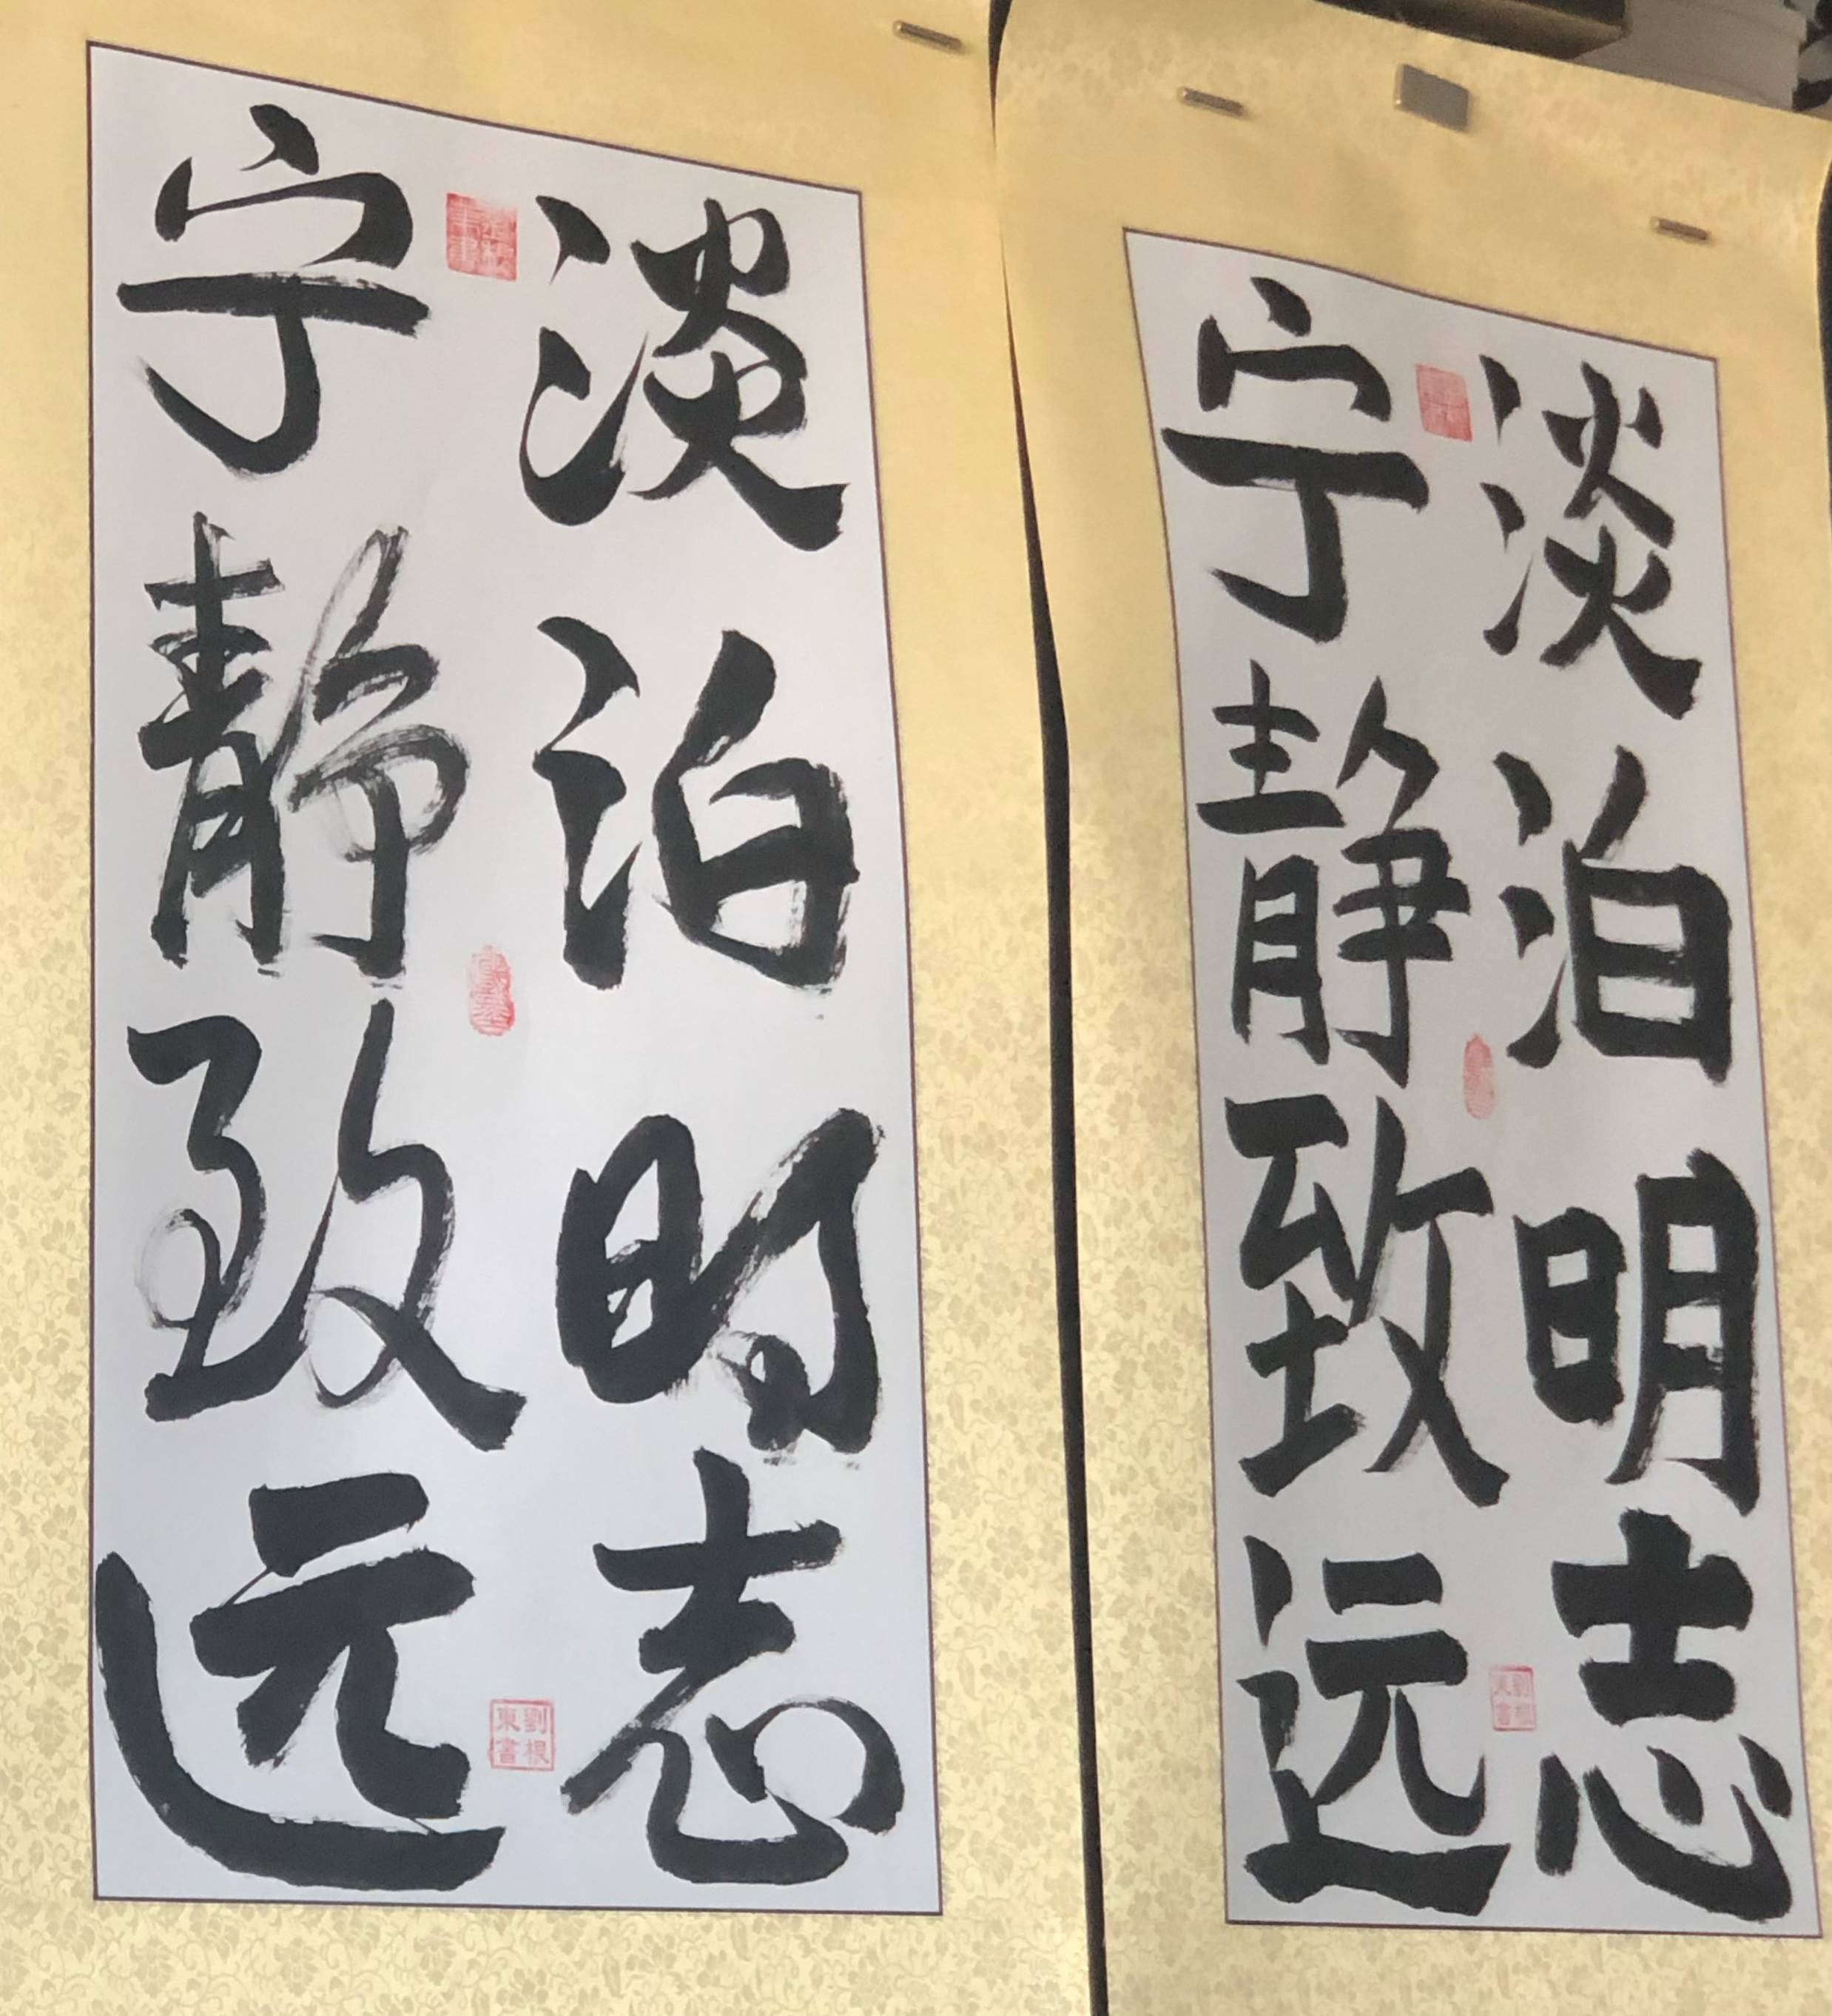 淡泊明志
宁静致远
劉根東書
淡泊明志
宁静致远